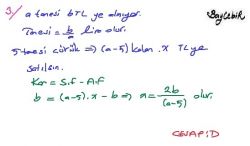 3.) a tanesi bTL ye alınıyor.
Tanesi = b/a lira olur.
5 tanesi çürük ⇒ (a-5) kalan. x TL ye
satılsın.
Kar = S.f - A.f
b = (a-5).x - b ⇒ x = 2b/(a-5) olur.
CEVAP: D